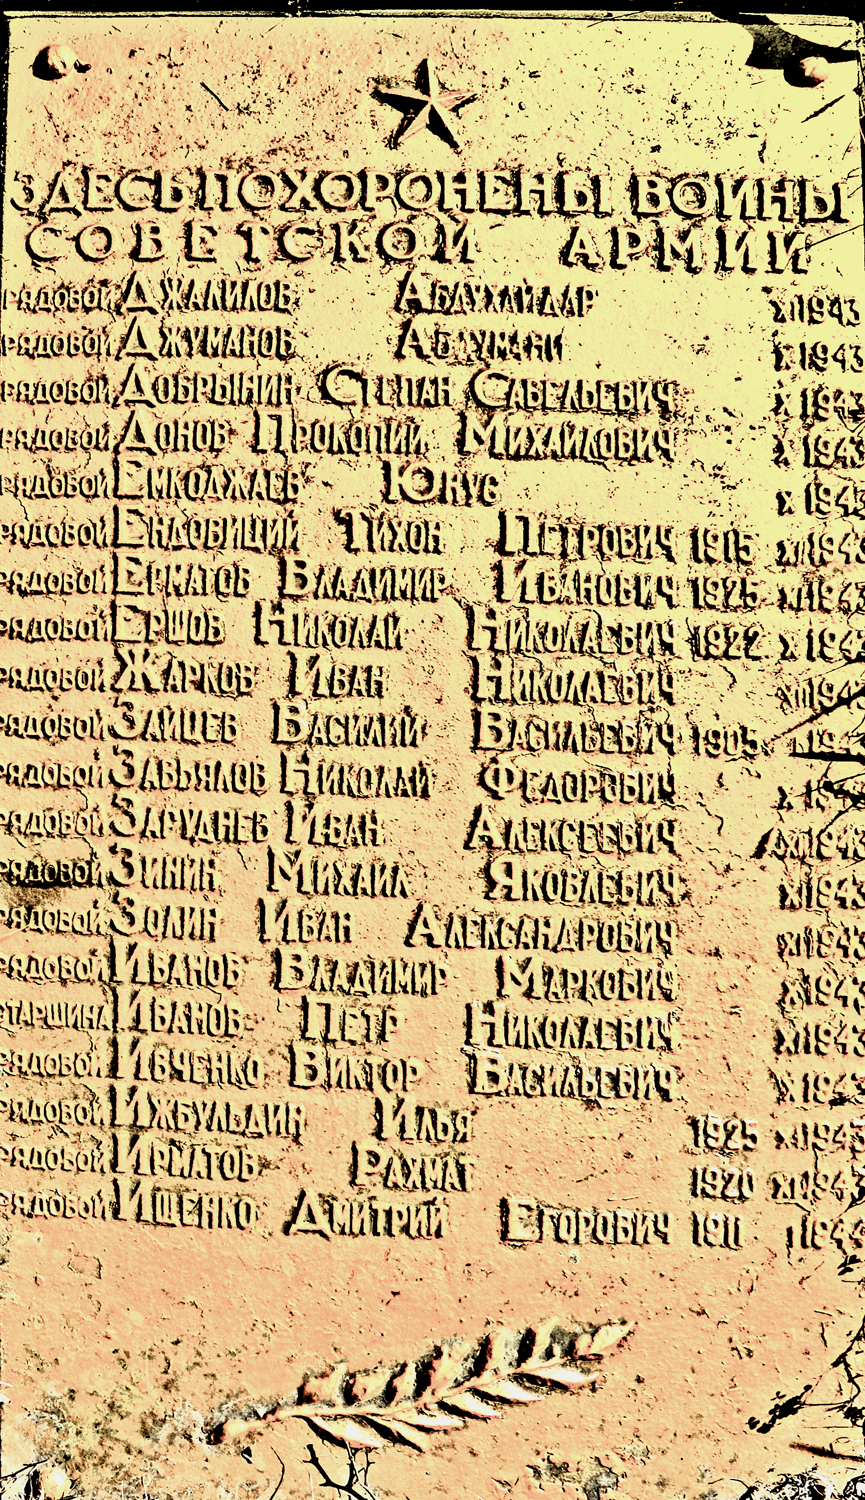 ЗДЕСЬ ПОХОРОНЕНЫ ВОИНЫ
СОВЕТСКОЙ АРМИИ
РЯДОВОЙ ДЖАЛИЛОВ 1943
РЯДОВОЙ ДЖУМАНОВ X 1943
РЯДОВОЙ ДОБРЫНИН СТЕПАН САВЕЛЬЕВИЧ X 1943
РЯДОВОЙ ДОНОВ ПРОКОПИЙ МИХАЙЛОВИЧ X 1943
РЯДОВОЙ ЕМКОДЖАЕВ ЮНУС X 1943
РЯДОВОЙ ЕНДОВИЦИЙ ТИХОН ПЕТРОВИЧ 1915 1943
РЯДОВОЙ ЕРМАТОВ ВЛАДИМИР ИВАНОВИЧ 1925 1943
РЯДОВОЙ ЕРШОВ НИКОЛАЙ НИКОЛАЕВИЧ 1922 X 1943
РЯДОВОЙ ЖАРКОВ ИВАН НИКОЛАЕВИЧ 1943
РЯДОВОЙ ЗАЙЦЕВ ВАСИЛИЙ ВАСИЛЬЕВИЧ 1905
РЯДОВОЙ ЗАВЬЯЛОВ НИКОЛАЙ ФЕДОРОВИЧ X 1943
РЯДОВОЙ ЗАРУДНЕВ ИВАН АЛЕКСЕЕВИЧ 1943
РЯДОВОЙ ЗИНИН МИХАИЛ ЯКОВЛЕВИЧ XI 1943
РЯДОВОЙ ЗОЛИН ИВАН АЛЕКСАНДРОВИЧ XI 1943
РЯДОВОЙ ИВАНОВ ВЛАДИМИР МАРКОВИЧ X 1943
СТАРШИНА ИВАНОВ ПЕТР НИКОЛАЕВИЧ XI 1943
РЯДОВОЙ ИВЧЕНКО ВИКТОР ВАСИЛЬЕВИЧ X 1943
РЯДОВОЙ ИЖБУЛЬДИН ИЛЬЯ 1925 XI 1943
РЯДОВОЙ ИРМАТОВ РАХМАТ 1920 1943
РЯДОВОЙ ИЩЕНКО ДМИТРИЙ ЕГОРОВИЧ 1911 I 1944